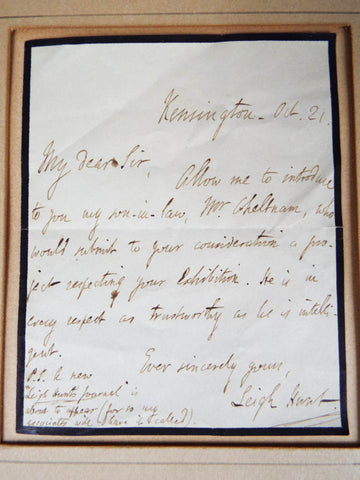 Kensington - Oct. 21.
My dear Sir,
Allow me to introduce
to you my son-in-law, Mr. Cheltnam, who
would submit to your consideration a pro-
ject respecting your Exhibition. He is in
every respect as trustworthy as he is intelli-
gent.
Ever sincerely yours,
Leigh Hunt.
P.S. A new
"Leigh Hunt's Journal" is
about to appear (for so my
associates will have it called).